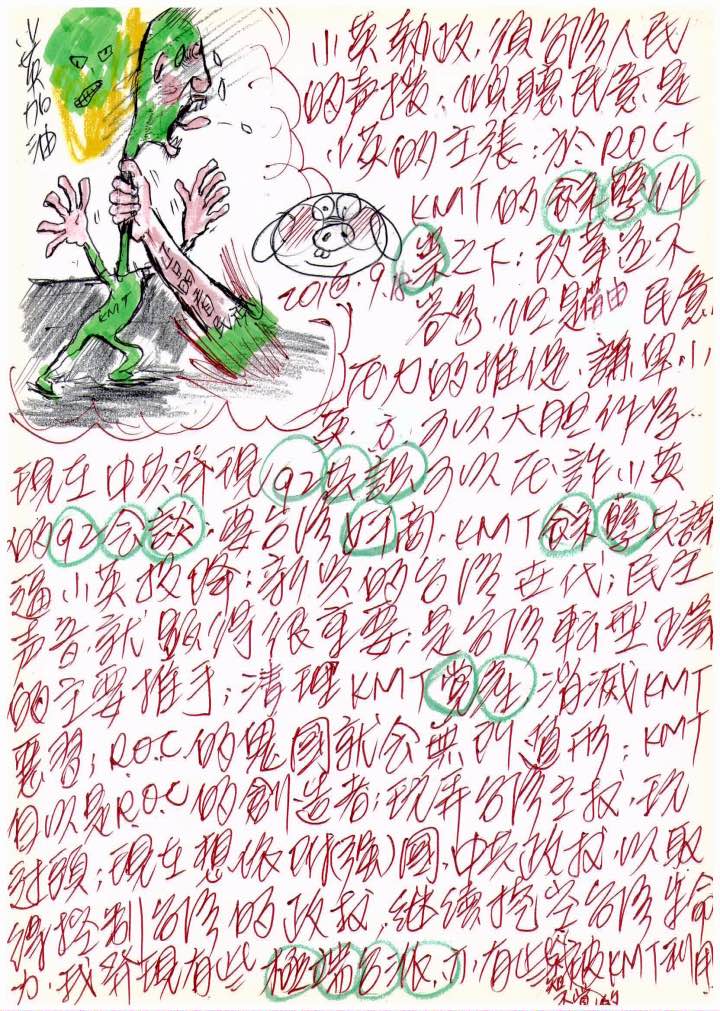 小英加油
小英執政,須台灣人民
的声援,傾聽民意是
小英的主張;於ROC+
KMT的餘孽作
祟之下;改革並不
2016.9.18
容易,但是藉由民意
压力的推促,讓思小
英方可以大胆作為..
KMT
現在中共發現92共識可以压詐小英
的92会談;要台灣好商.KMT餘孽共謀
逼小英投降;新兴的台灣世代;民主
声音就顯得很重要;是台灣転型正義
的主要推手;清理KMT党產,消滅KMT
惡習;ROC的鬼國就会無所遁形;KMT
自以是ROC的創造者;玩弄台灣主权,玩
过頭;現在想依附(强)國中共政权,以取
得控制台灣的政权,继续挖空台灣生命
力.我發現有些極端台派,亦有些被KMT利用